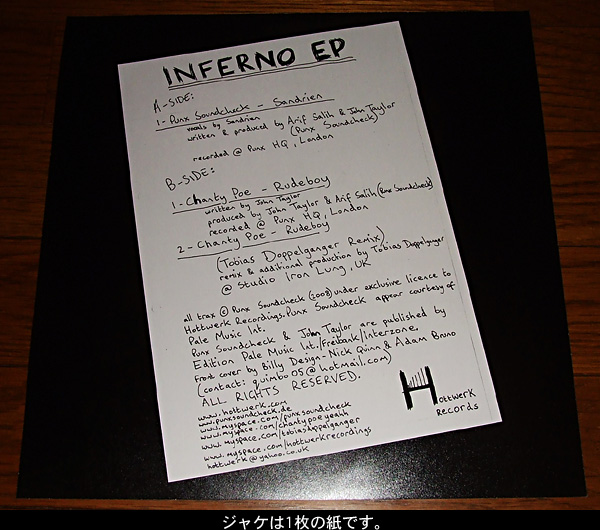 INFERNO EP
A-SIDE:
1- Punx Soundcheck - Sandrien
vocals by Sandrien
written & produced by Arif Salih & John Taylor
(Punx Soundcheck)
recorded @ Punx HQ, London
B-SIDE:
1- Chanty Poe - Rudeboy
written by John Taylor
produced by John Taylor & Arif Salih (Punx Soundcheck)
recorded @ Punx HQ, London
2 - Chanty Poe - Rudeboy
(Tobias Doppelganger Remix)
remix & additional production by Tobias Doppelganger
@ Studio Iron Lung, UK
all trax © Punx Soundcheck (2008) under exclusive licence to
Hottwerk Recordings. Punx Soundcheck appear courtesy of
Pale Music Int.
Punx Soundcheck & John Taylor are published by
Edition Pale Music Int./Freibank/interzone,
Front cover by Billy Design - Nick Quinn & Adam Bruno
(contact: quimbo05@hotmail.com)
ALL RIGHTS RESERVED.
www.hottwerk.com
www.punxsoundcheck.de
www.myspace.com/punxsoundcheck
www.myspace.com/chantypoeyeahh
www.myspace.com/tobiasdoppelganger
www.myspace.com/hottwerkrecordings
hottwerk@yahoo.co.uk
Hottwerk
Records
ジャケは1枚の紙です。